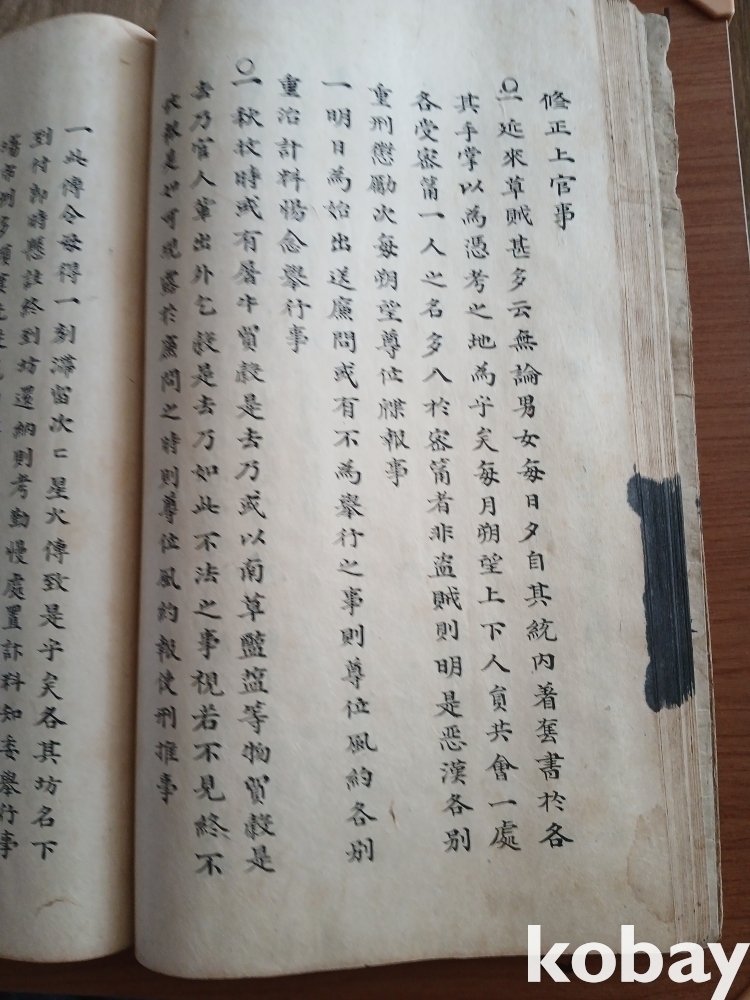 修正上官事
○一近來草賊甚多云無論男女每日夕自其統內着套書於各
其手掌以爲憑考之地爲乎矣每月朔望上下人員共會一處
各受密筩一人之名多入於密筩者非盜賊則明是惡漢各別
重刑懲勵次每朔望尊位牒報事
一明日爲始出送廉問或有不爲擧行之事則尊位風約各別
重治計料惕念擧行事
○一秋收時或有屠牛貿穀是去乃或以南草鹽盐等物貿穀是
去乃官人輩出外乞穀是去乃如此不法之事視若不見終不
狀報是如可現露於廉問之時則尊位風約報使刑推事
一此傳令毋得一刻滯留次匕星火傳致是乎矣各其坊名下
到付卽時懸註終到坊還納則考勤慢處置計料知委擧行事
kobay